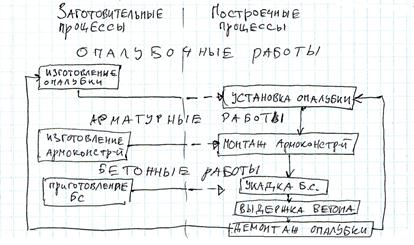 Заготовительные процессы
Построечные процессы
ОПАЛУБОЧНЫЕ РАБОТЫ
ИЗГОТОВЛЕНИЕ ОПАЛУБКИ
УСТАНОВКА ОПАЛУБКИ
АРМАТУРНЫЕ РАБОТЫ
ИЗГОТОВЛЕНИЕ АРМОКОНСТР-Й
МОНТАЖ АРМОКОНСТР-Й
БЕТОННЫЕ РАБОТЫ
ПРИГОТОВЛЕНИЕ БС
УКЛАДКА Б.С.
ВЫДЕРЖКА БЕТОНА
ДЕМОНТАЖ ОПАЛУБКИ